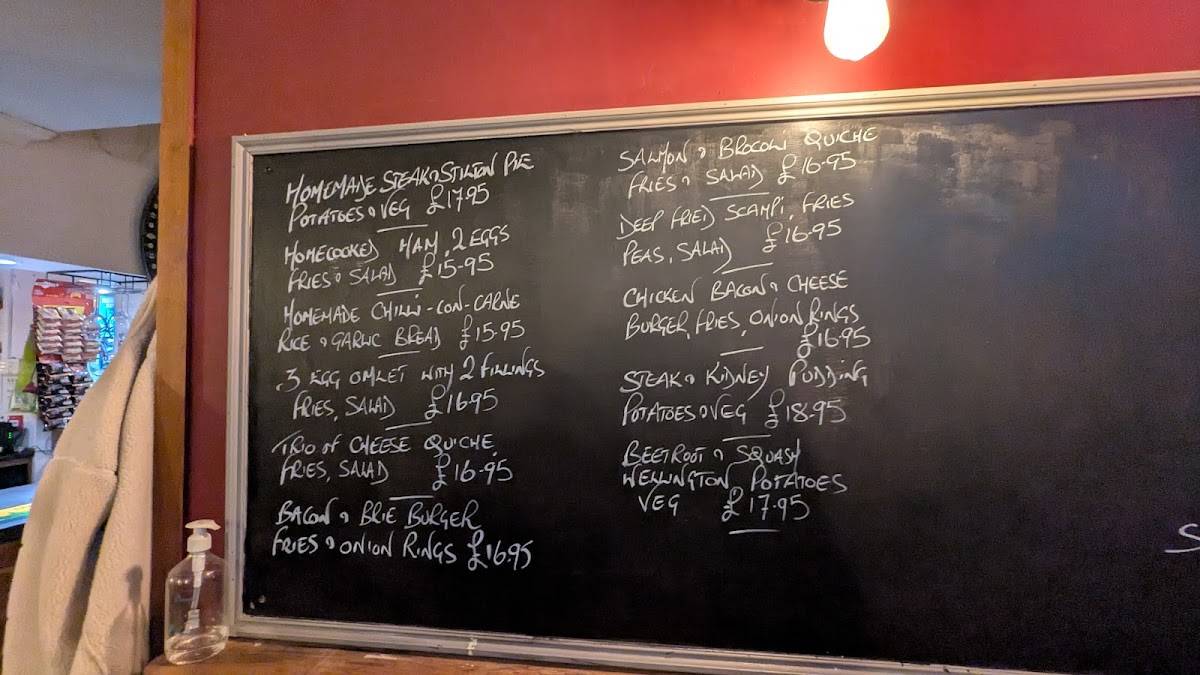 HOMEMADE STEAK & STILTON PIE
POTATOES & VEG £17.95
HOMECOOKED HAM, 2 EGGS
FRIES & SALAD £15-95
HOMEMADE CHILLI-CON-CARNE
RICE & GARLIC BREAD £15.95
3 EGG OMLET WITH 2 FILLINGS
FRIES, SALAD £16.95
TRIO OF CHEESE QUICHE,
FRIES, SALAD £16-95
BACON & BRIE BURGER
FRIES & ONION RINGS £16.95
SALMON & BROCOLI QUICHE
FRIES & SALAD £16.95
DEEP FRIED SCAMPI, FRIES
PEAS, SALAD £16.95
CHICKEN BACON & CHEESE
BURGER, FRIES, ONION RINGS
£16.95
STEAK & KIDNEY PUDDING
POTATOES & VEG £18.95
BEETROOT & SQUASH
WELLINGTON, POTATOES
VEG £17.95
S